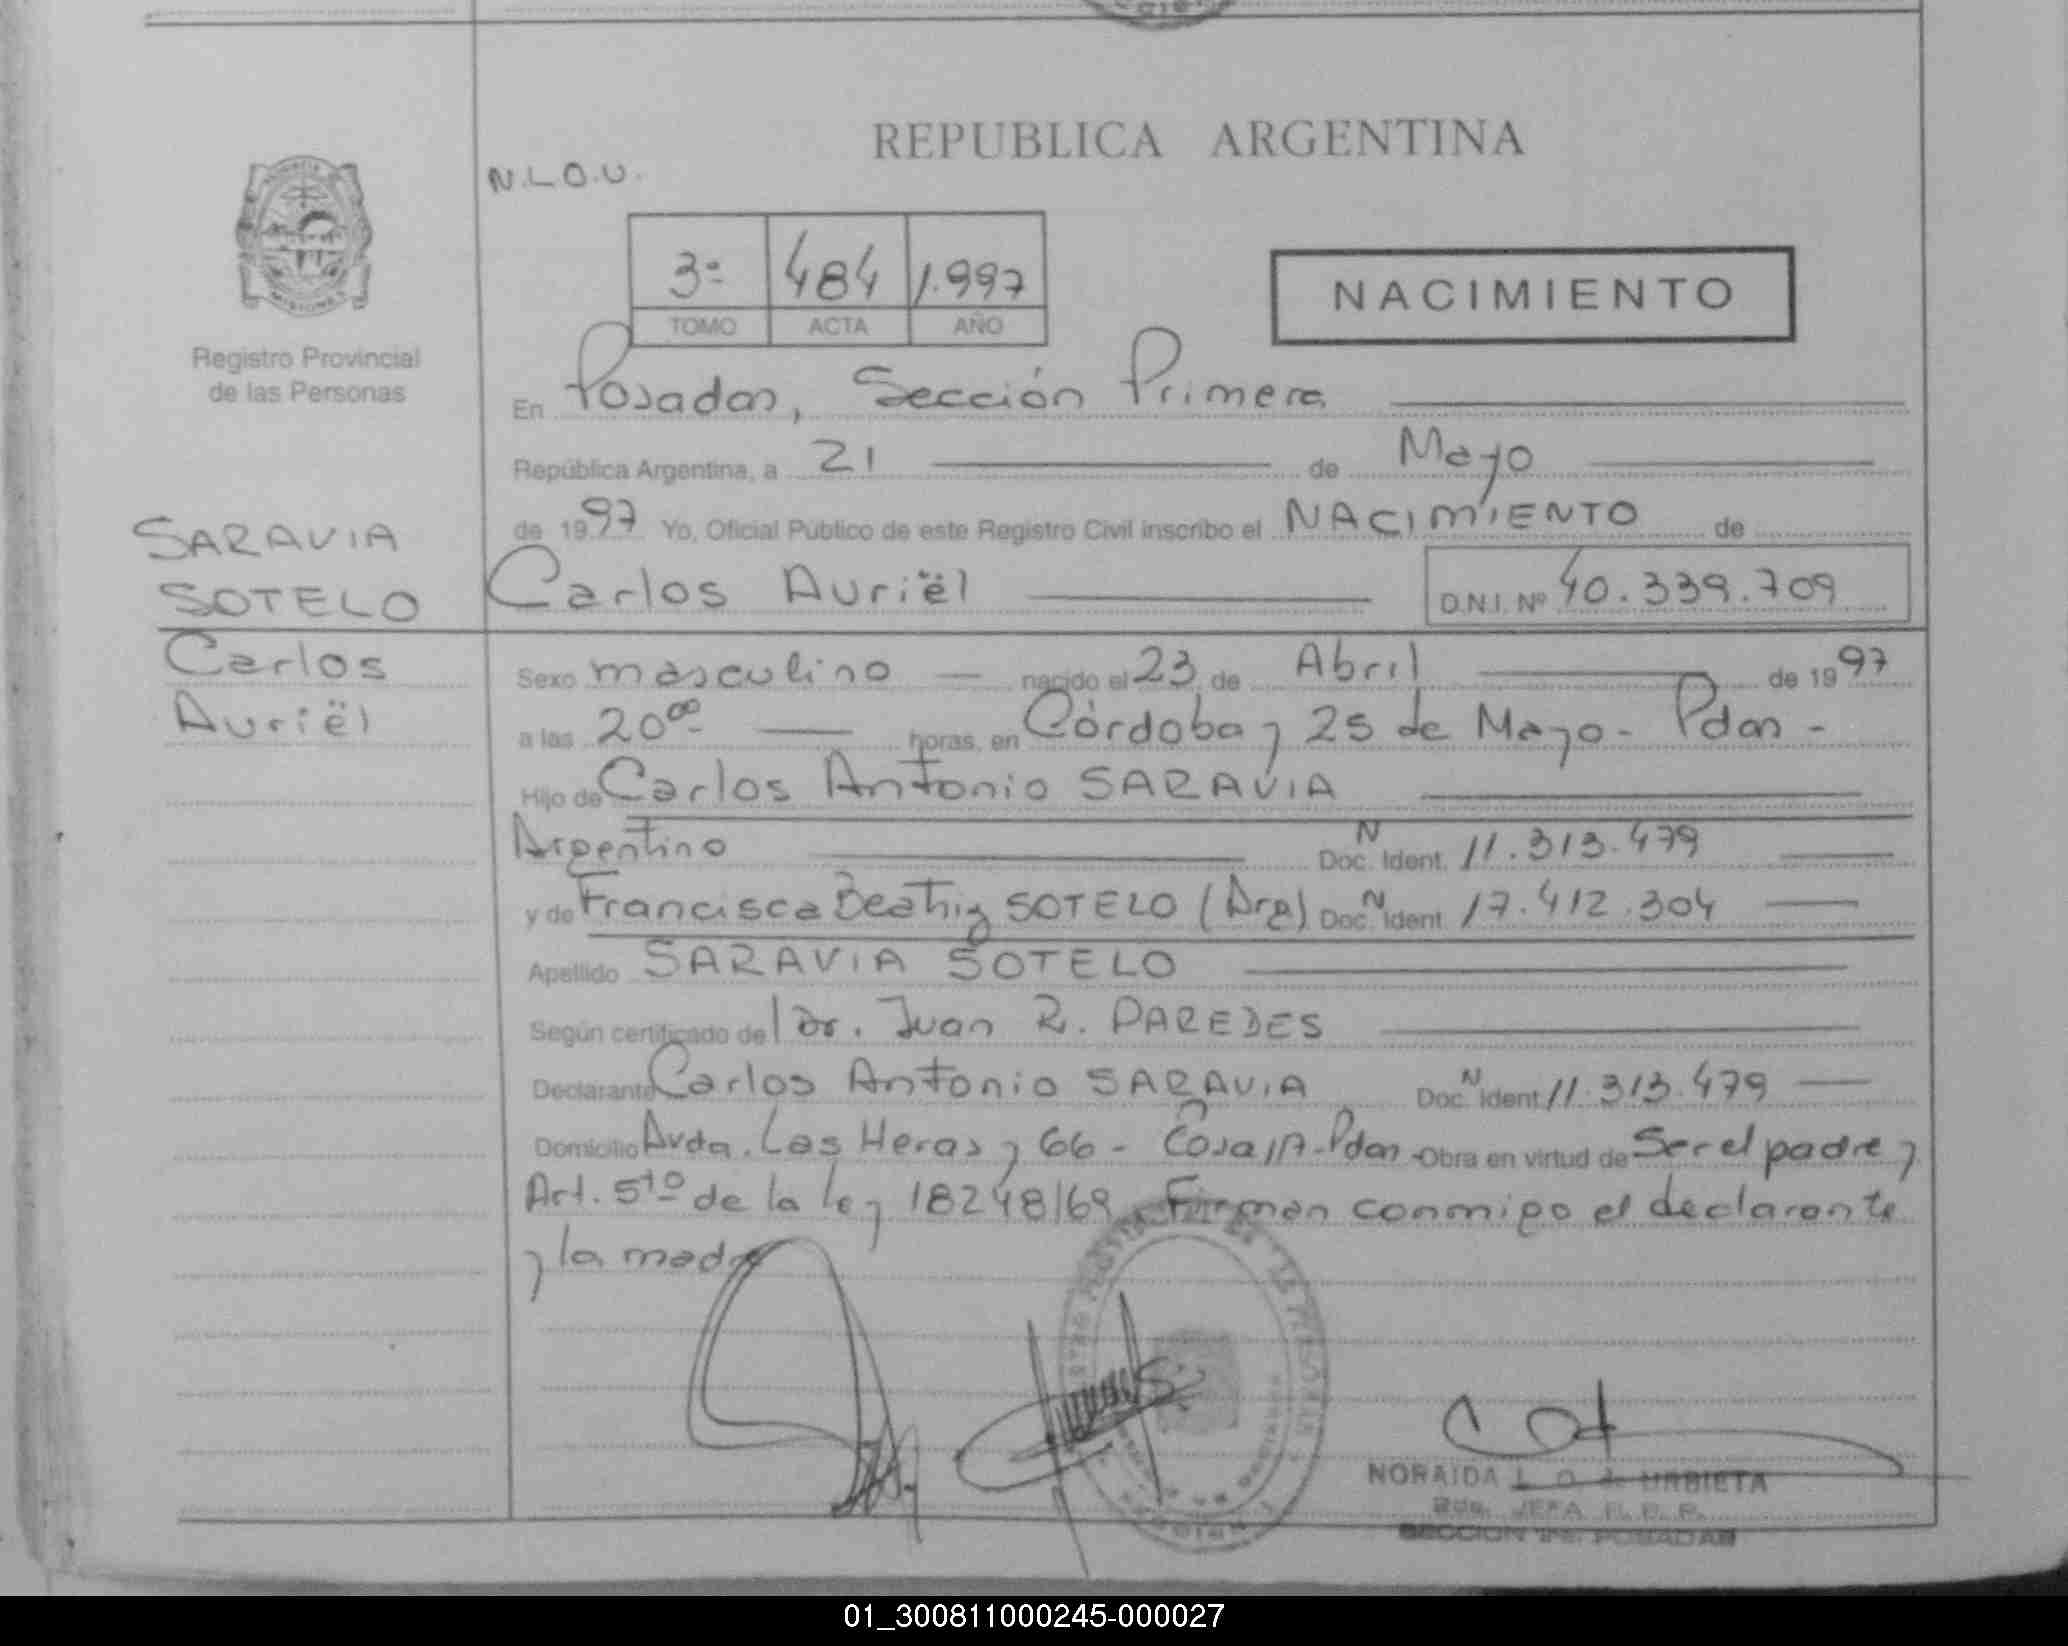 REPUBLICA ARGENTINA
N.L.O.U.
3º 484 1.997
TOMO ACTA AÑO
NACIMIENTO
MISIONES
Registro Provincial
de las Personas
En Posadas, Sección Primera
República Argentina, a 21 de Mayo
de 1997 Yo, Oficial Público de este Registro Civil inscribo el NACIMIENTO de
SARAVIA
SOTELO
Carlos
Auriël
Carlos Auriël D.N.I. Nº 40.339.709
Sexo masculino nacido el 23 de Abril de 1997
a las 20ºº horas, en Córdoba y 25 de Mayo - Pdas -
Hijo de Carlos Antonio SARAVIA
Argentino Doc. N Ident. 11.313.479
y de Francisca Beatriz SOTELO (Arg) Doc. N Ident. 17.412.304
Apellido SARAVIA SOTELO
Según certificado del Dr. Juan R. PAREDES
Declarante Carlos Antonio SARAVIA Doc. N Ident. 11.313.479
Domicilio Avda. Las Heras y 66 - Pdas - Obra en virtud de Ser el padre y
Art. 5to de la ley 18248/69 Firman conmigo el declarante
y la madre
NORAIDA L. O. de URBIETA
JEFA R. P. P.
SECCION 1ra. POSADAS
01_300811000245-000027